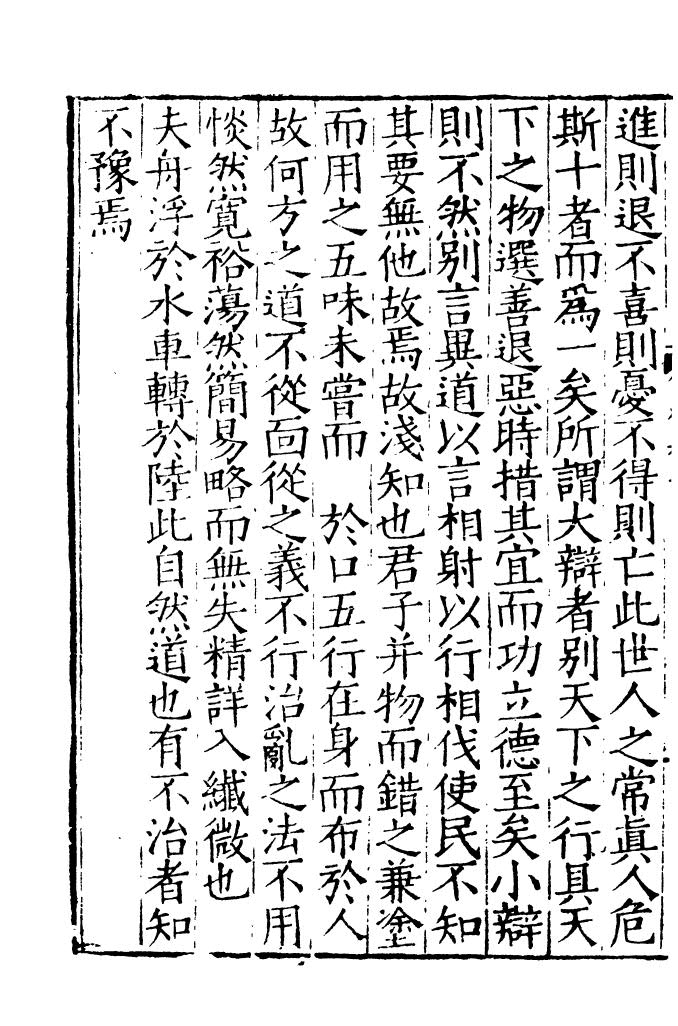 進則退不喜則憂不得則亡此世人之常眞人危
斯十者而爲一矣所謂大辯者別天下之行具天
下之物選善退惡時措其宜而功立德至矣小辯
則不然別言異道以言相射以行相伐使民不知
其要無他故焉故淺知也君子并物而錯之兼塗
而用之五味未嘗而　於口五行在身而布於人
故何方之道不從面從之義不行治亂之法不用
惔然寬裕蕩然簡易略而無失精詳入纖微也
夫舟浮於水車轉於陸此自然道也有不治者知
不豫焉